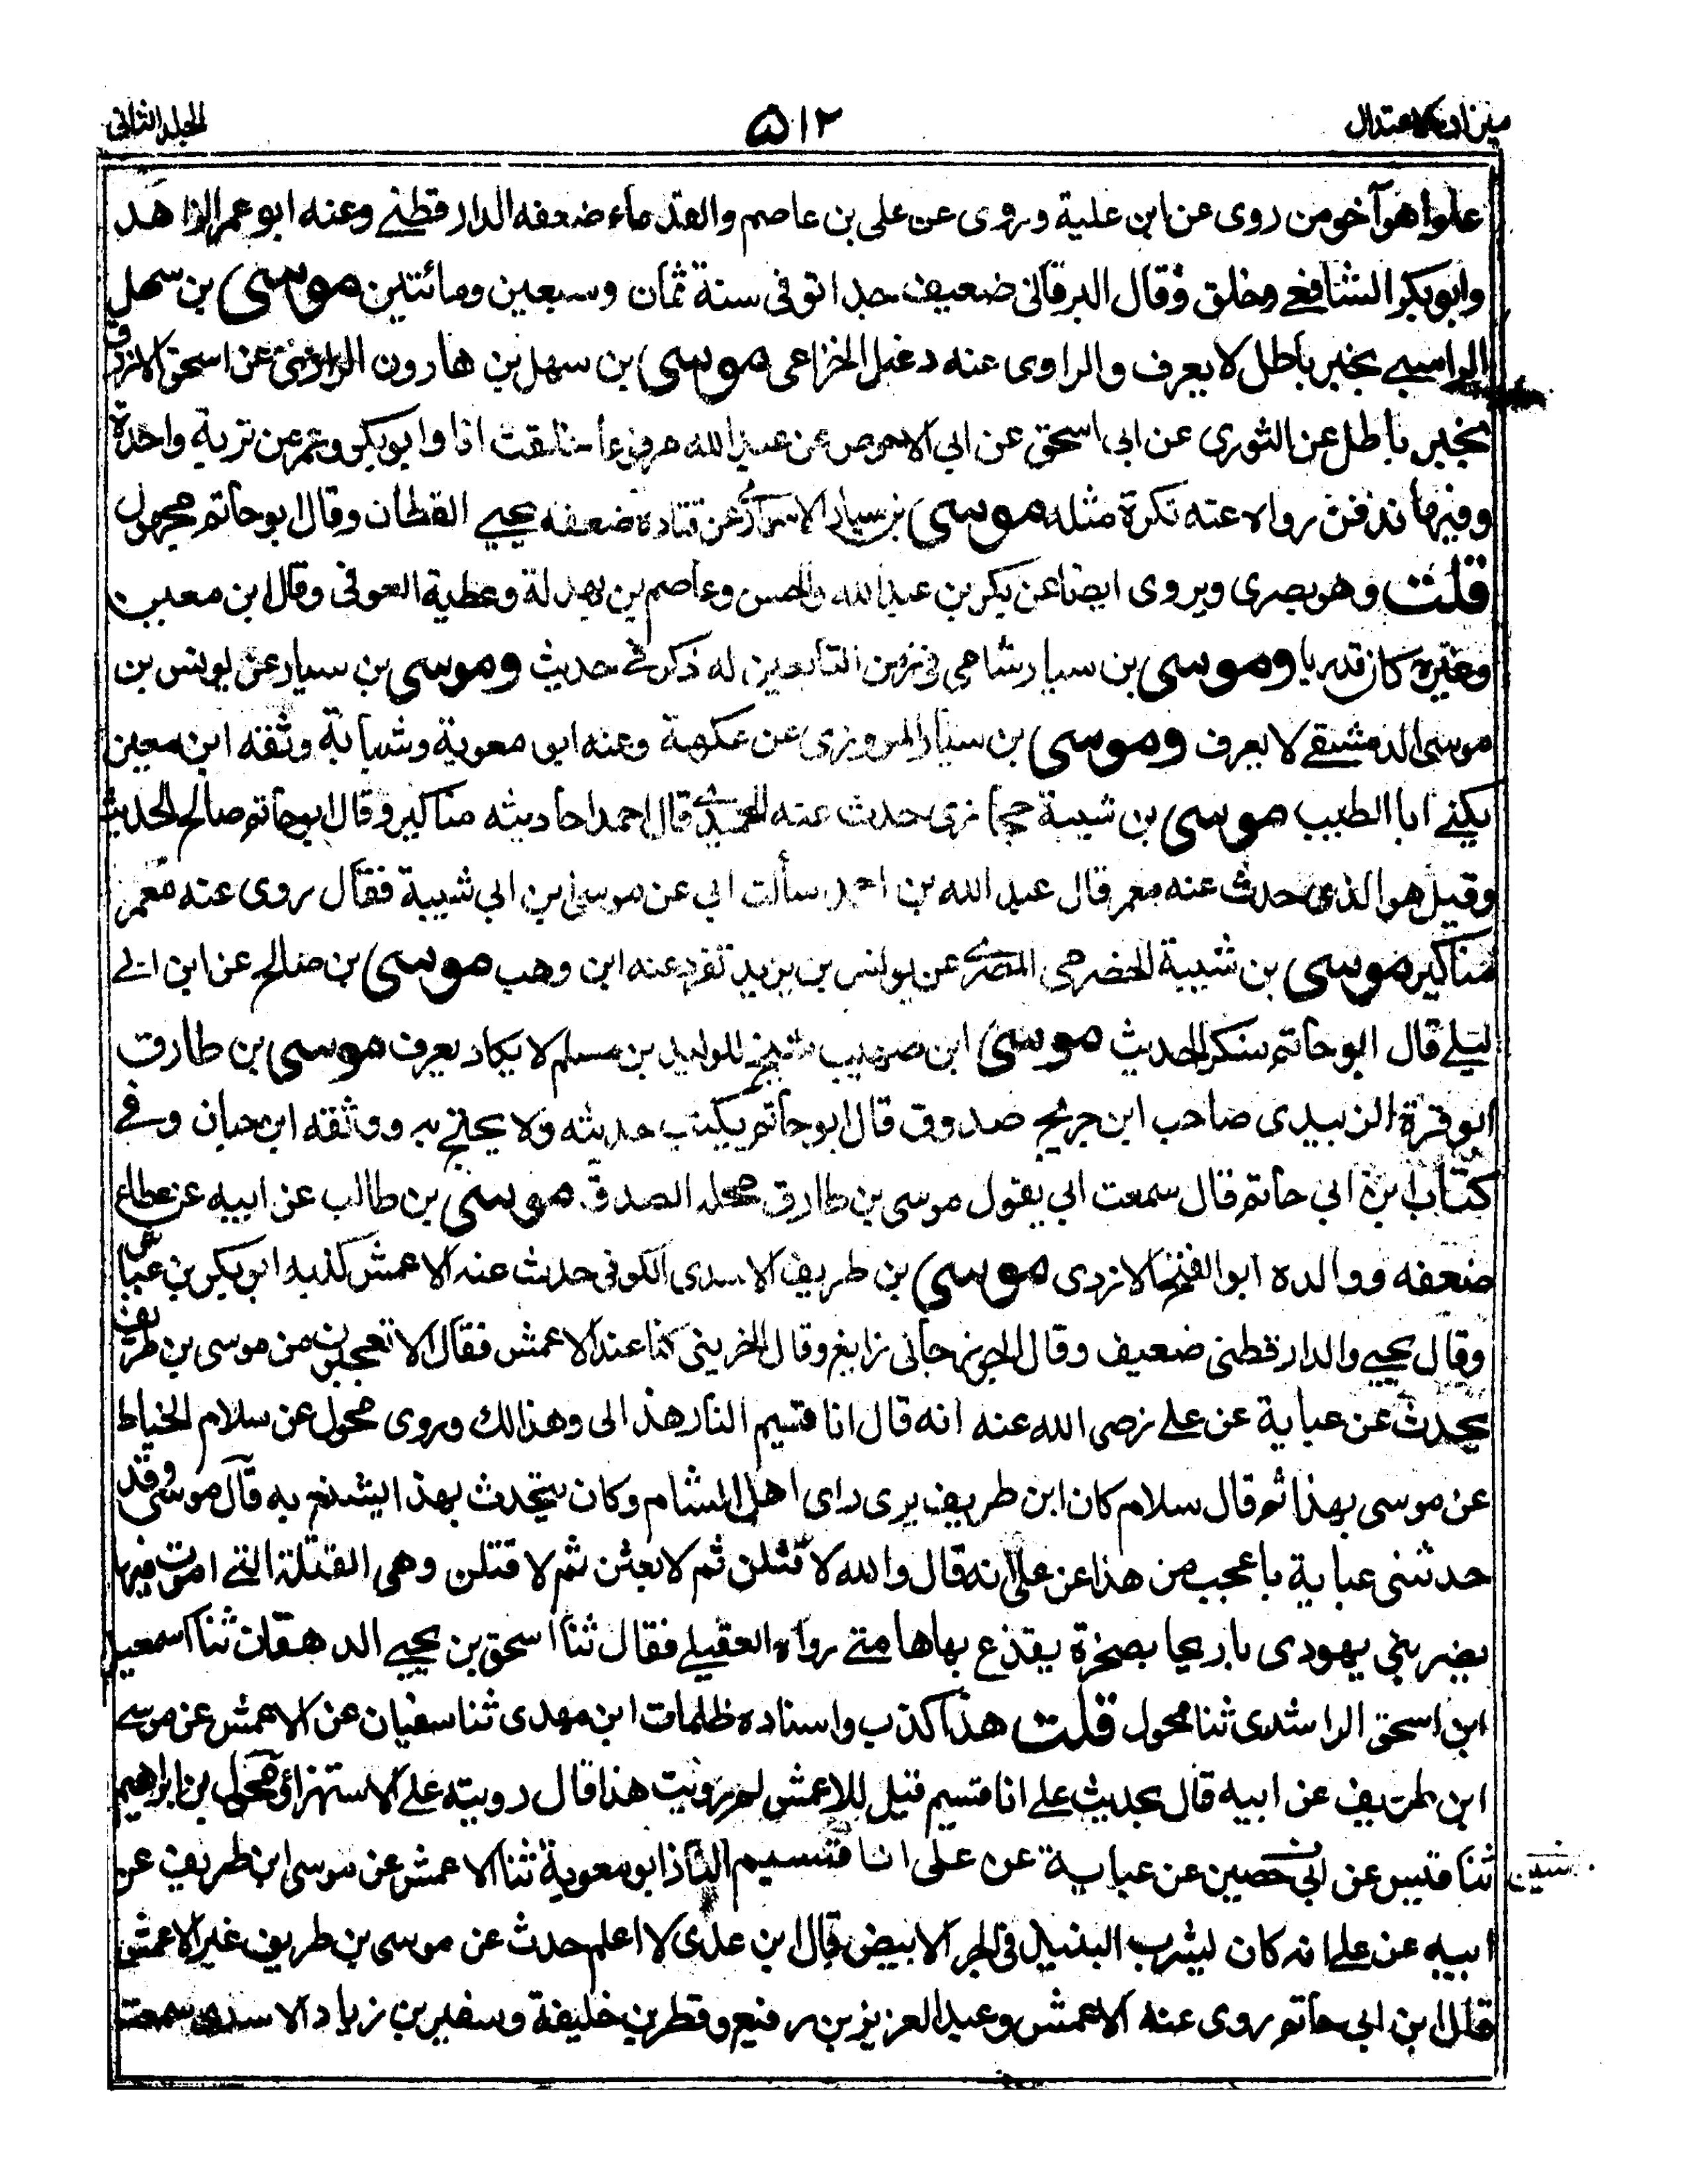 ميزان الاعتدال
٥١٢
المجلد الثانى
علوا هو آخر من روى عن ابن علية وروى عن على بن عاصم والقدماء ضعفه الدارقطنے وعنه ابو عمر الزاهد
وابوبكر الشافعے وخلق وقال البرقانى ضعيف جدا توفى سنة ثمان وسبعين ومائتين موسى بن سهل
الراسبے بخبر باطل لا يعرف والراوى عنه دعبل الخزاعى موسى بن سهل بن هارون الرازى عن اسحق الازرق
بخبر باطل عن الثورى عن ابى اسحق عن ابى الاحوص عن عبدالله مرفوعا خلقت انا وابوبكر وعمر من تربة واحدة
وفيها ندفن رواه عنه نكرة مثله موسى بن سيار الاسوارے عن قتادة ضعفه يحيے القطان وقال ابو حاتم مجهول
قلت وهو بصرى ويروى ايضا عن بكر بن عبدالله والحسن وعاصم بن بهدلة وعطية العوفى وقال ابن معين
وغيره كان قدريا وموسى بن سيار شامى فى زمن التابعين له ذكر فے حديث وموسى بن سيار عن يونس بن
موسى الدمشقے لا يعرف وموسى بن سيار المروزى عن عكرمة وعنه ابو معوية وشبابة وثقه ابن معين
يكنے ابا الطيب موسى بن شيبة حجازى حدث عنه الحميدے قال احمد احاديثه مناكير وقال ابوحاتم صالح الحديث
وقيل هو الذى حدث عنه معمر قال عبد الله بن احمد سألت ابى عن موسى بن ابى شيبة فقال روى عنه معمر
مناكير موسى بن شيبة الحضرمى المصرے عن يونس بن يزيد تفرد عنه ابن وهب موسى بن صالح عن ابن ابے
ليلے قال ابو حاتم منكر الحديث موسى ابن صهيب شيخ للوليد بن مسلم لا يكاد يعرف موسى بن طارق
ابو قرة الزبيدى صاحب ابن جريج صدوق قال ابو حاتم يكتب حديثه ولا يحتج به ووثقه ابن حبان وفے
كتاب ابن ابى حاتم قال سمعت ابى يقول موسى بن طارق محله الصدق موسى بن طالب عن ابيه عن عطاء
ضعفه ووالده ابو الفتح الازدى موسى بن طريف الاسدى الكوفى حدث عنه الاعمش كذبه ابوبكر بن عياش
وقال يحيے والدارقطنى ضعيف وقال الجوزجانى زايغ وقال الخريبى كنا عند الاعمش فقال الا تعجبون من موسى بن طريف
يحدث عن عباية عن علے رضى الله عنه انه قال انا قسيم النار هذا لى وهذا لك وروى مخول عن سلام الخياط
عن موسى بهذا ثم قال سلام كان ابن طريف يرى راى اهل الشام وكان يتحدث بهذا يشنع به قال موسى وقد
حدثنى عباية باعجب من هذا عن على انه قال والله لاقتلن ثم لابعثن ثم لاقتلن وهى القتلة التے اموت فيها
يضربنى يهودى باريحا بصخرة يقذع بها هامتے رواه العقيلے فقال ثنا اسحق بن يحيے الدهقان ثنا اسمعيل
ابن اسحق الراشدى ثنا مخول قلت هذا كذب واسناده ظلمات ابن مهدى ثنا سفيان عن الاعمش عن موسے
ابن طريف عن ابيه قال بحديث علے انا قسيم قيل للاعمش لم رويت هذا قال رويته علے الاستهزاء مخول بن ابراهيم
ثنا قيس عن ابى حصين عن عباية عن على انا قسيم النار ابو معوية ثنا الاعمش عن موسى ابن طريف عن
ابيه عن علے انه كان يشرب النبيذ فى الجر الابيض قال ابن عدى لا اعلم حدث عن موسى بن طريف غير الاعمش
قال ابن ابى حاتم روى عنه الاعمش وعبد العزيز بن رفيع وقطر بن خليفة وسفير بن زياد الاسدى سمعت